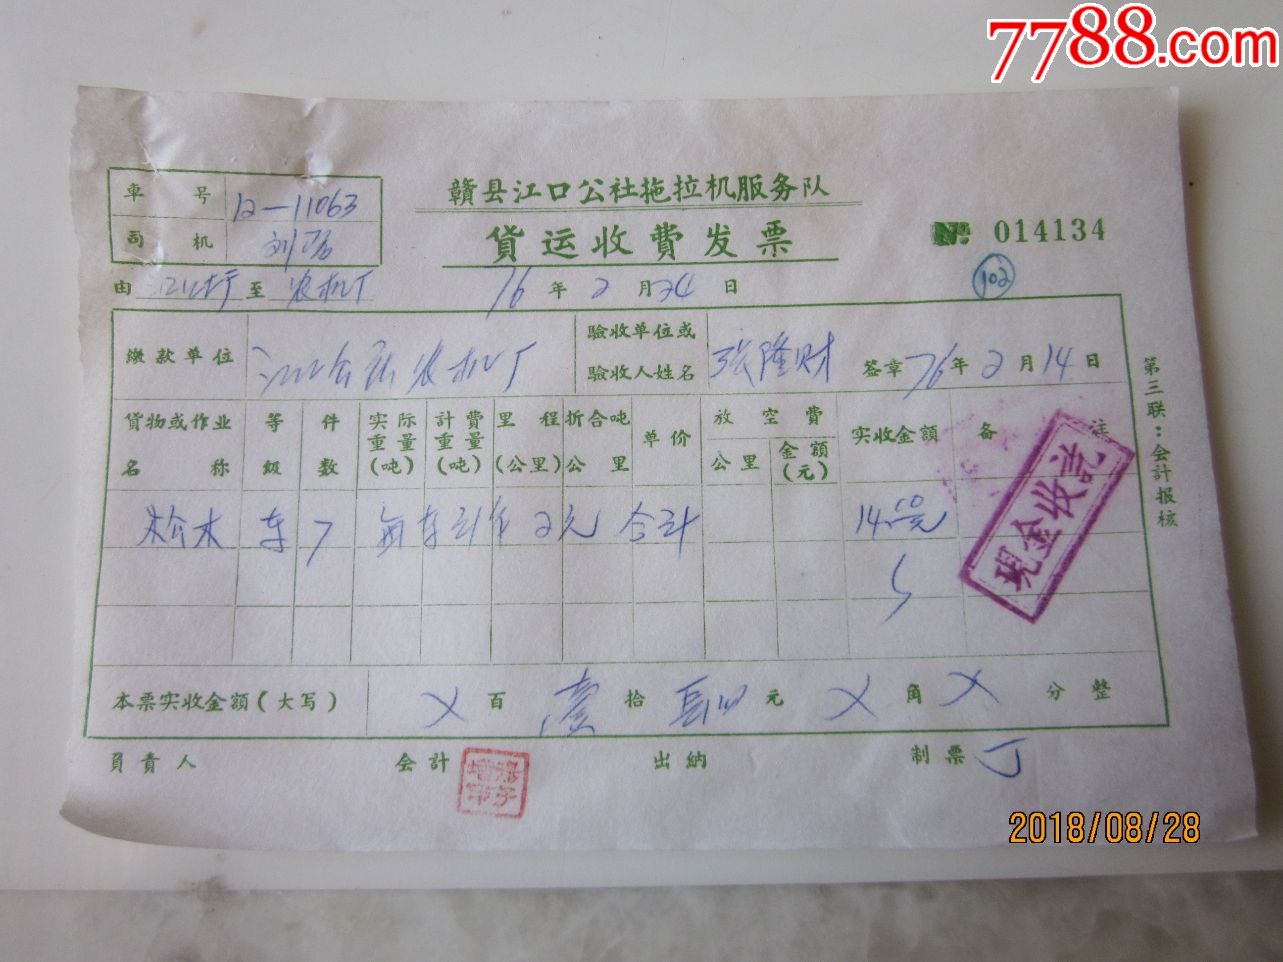 7788.com
贛县江口公社拖拉机服务队
貨运收費发票
№ 014134
102
車号 12-11063
司机 刘
由 至 农机厂
76年2月24日
繳款单位 江口公社农机厂
驗收单位或驗收人姓名 张隆财
签章 76年2月14日
貨物或作业名称 等級 件数 实际重量(吨) 計費重量(吨) 里程(公里) 折合吨公里 单价 放空費 公里 金額(元) 实收金額 备註
松木 车 7 每车计 2元 合计 14.00元
現金收訖
本票实收金額(大写) X百 壹拾 肆元 X角 X分整
負責人 会計 出納 制票 丁
第三联:会计报核
2018/08/28